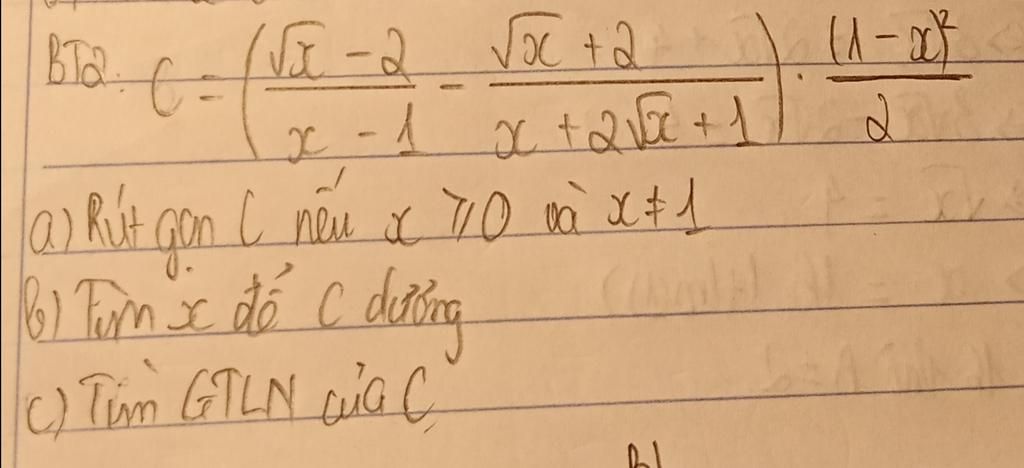 BT2: C = (√x - 2 / x - 1 - √x + 2 / x + 2√x + 1) . (1 - x)² / 2
a) Rút gọn C nếu x ⩾ 0 và x ≠ 1
b) Tìm x để C dương
c) Tìm GTLN của C